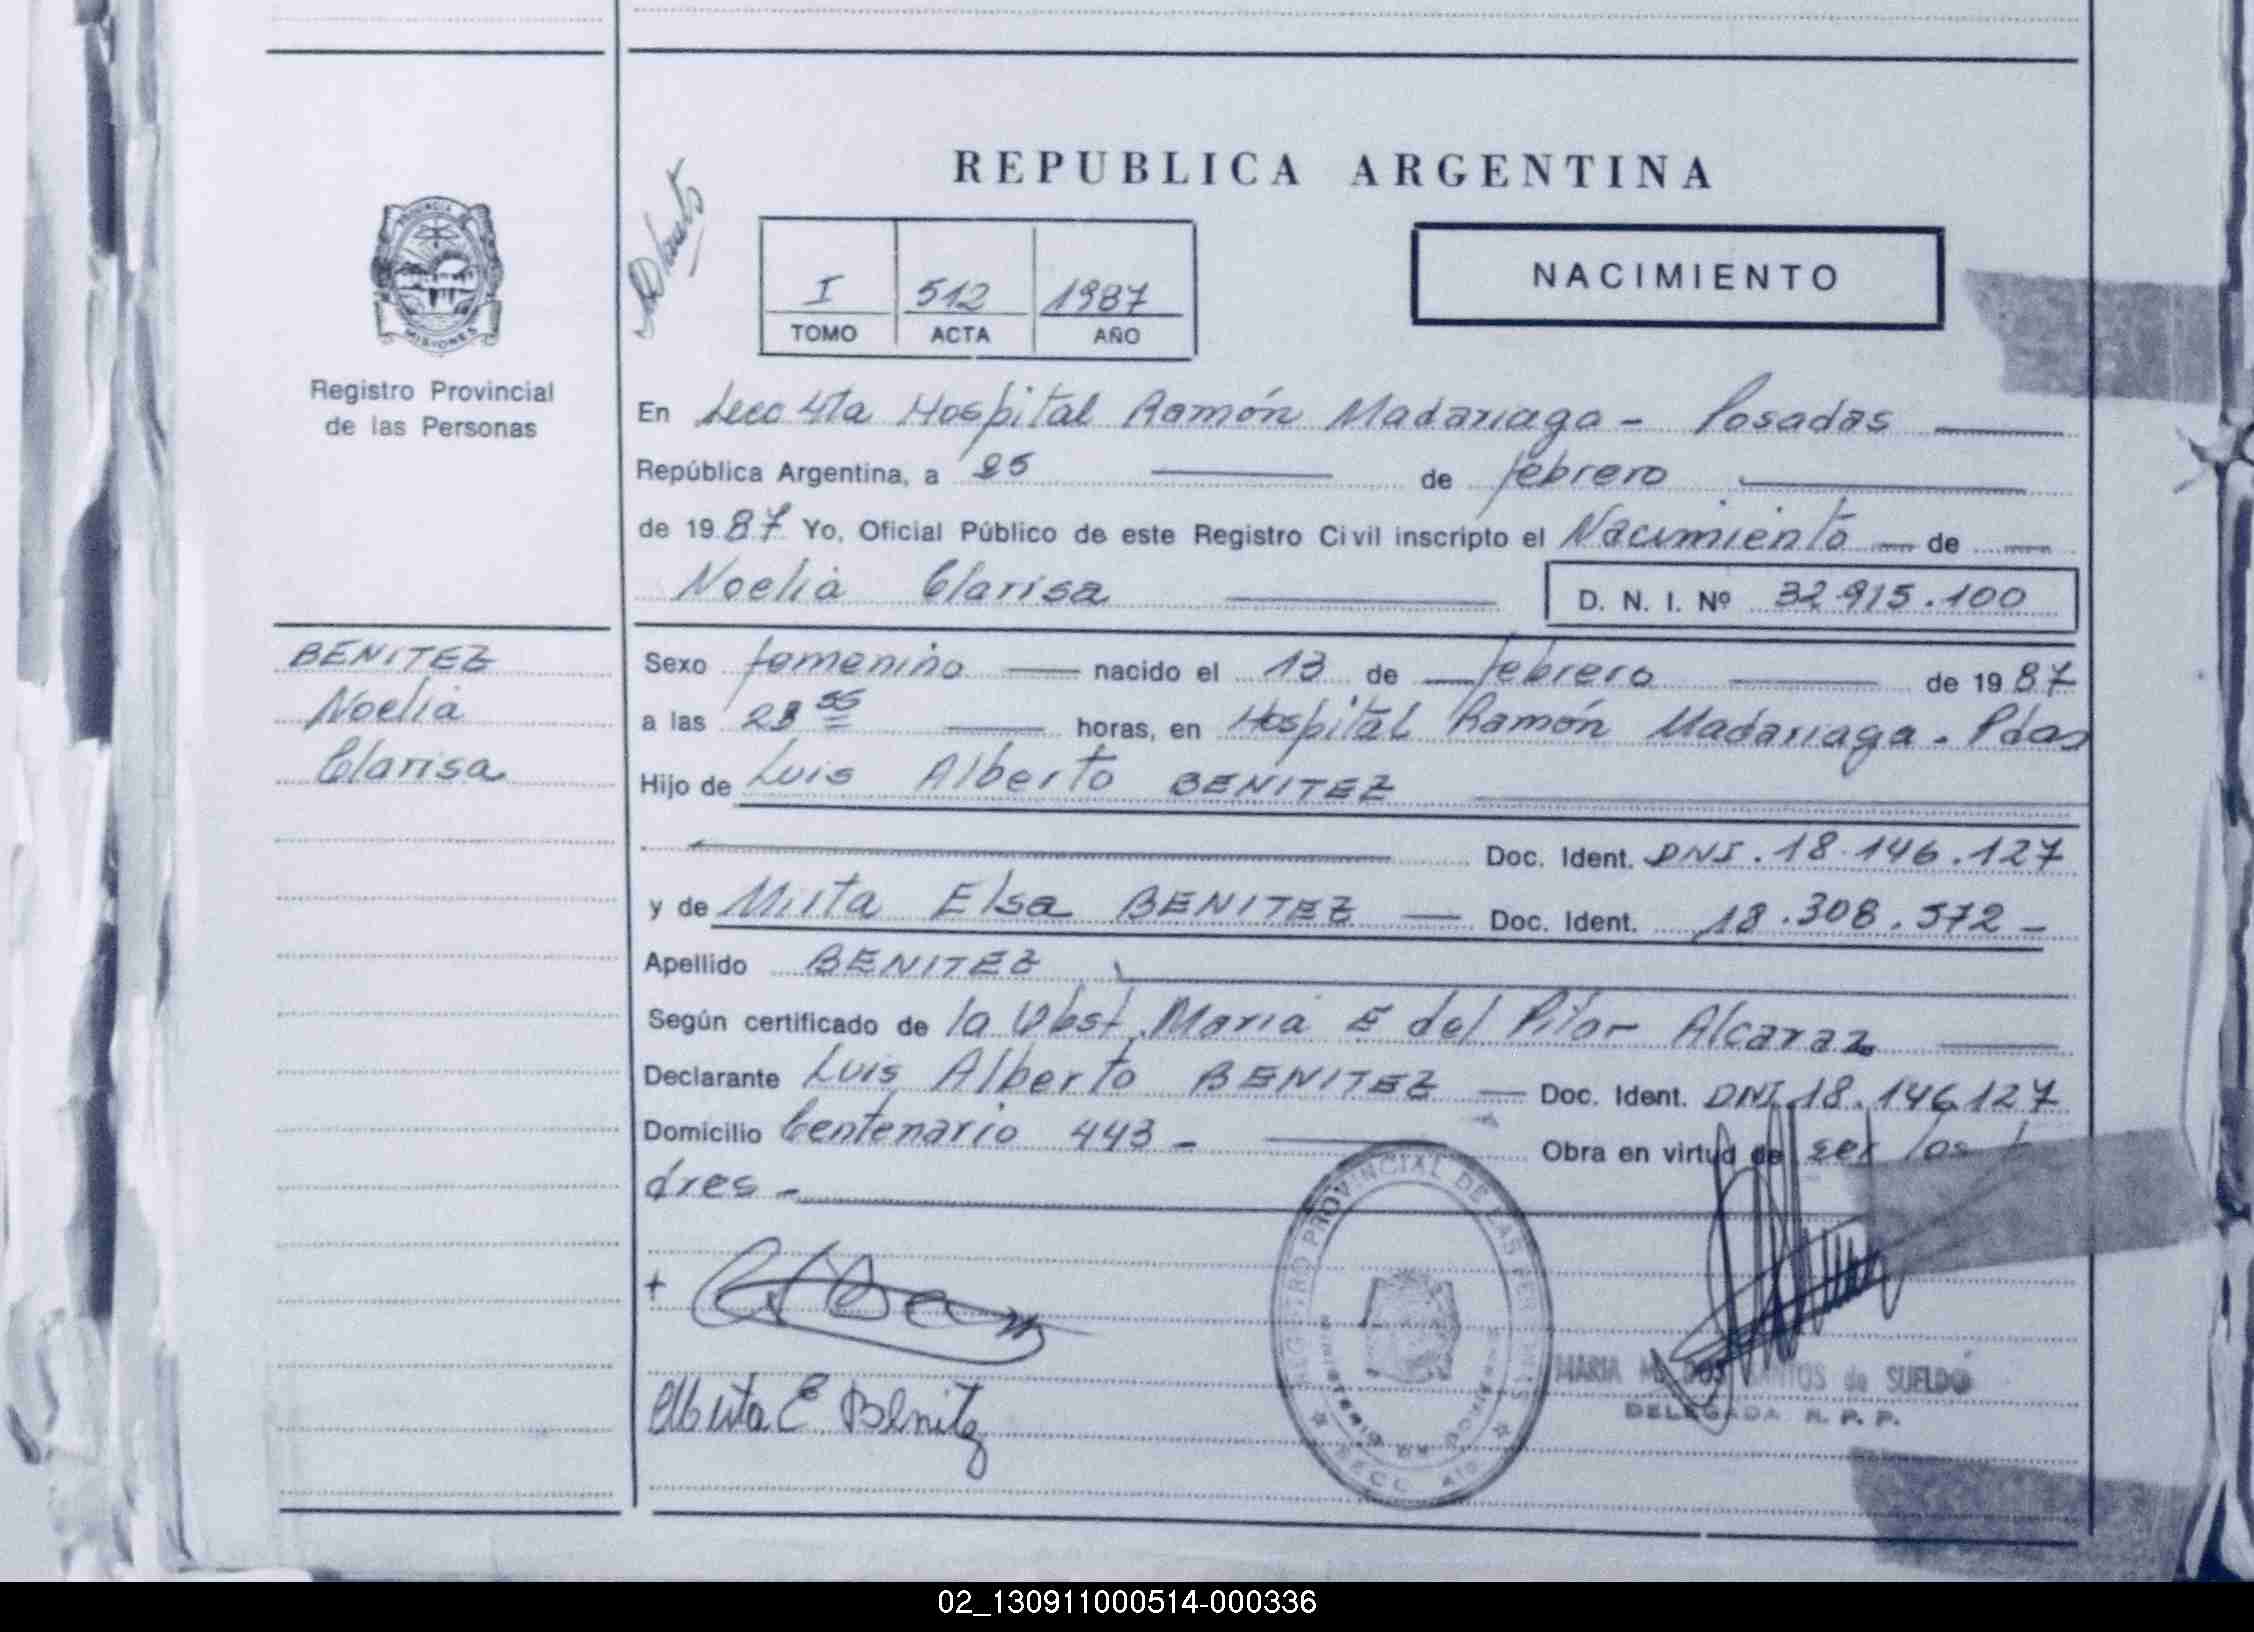 REPUBLICA ARGENTINA
PROVINCIA
MISIONES
Registro Provincial
de las Personas
I 512 1987
TOMO ACTA AÑO
NACIMIENTO
En Secc 4ta Hospital Ramón Madariaga - Posadas
República Argentina, a 25 de febrero
de 1987 Yo, Oficial Público de este Registro Civil inscripto el Nacimiento de
Noelia Clarisa D. N. I. Nº 32.915.100
BENITEZ
Noelia
Clarisa
Sexo femenino nacido el 13 de febrero de 1987
a las 23 55 horas, en Hospital Ramón Madariaga - Pdas
Hijo de Luis Alberto BENITEZ
Doc. Ident. DNI. 18.146.127
y de Mirta Elsa BENITEZ Doc. Ident. 18.308.572 -
Apellido BENITEZ
Según certificado de la Obst. Maria E del Pilar Alcaraz
Declarante Luis Alberto BENITEZ Doc. Ident. DNI 18.146.127
Domicilio Centenario 443 - Obra en virtud de ser los
dres -
REGISTRO PROVINCIAL DE LAS PERSONAS
Ministerio de Gobierno
SECC. 4ta
Alberta E Benitez
MARIA DOS SANTOS de SUELDO
DELEGADA R. P. P.
02_130911000514-000336